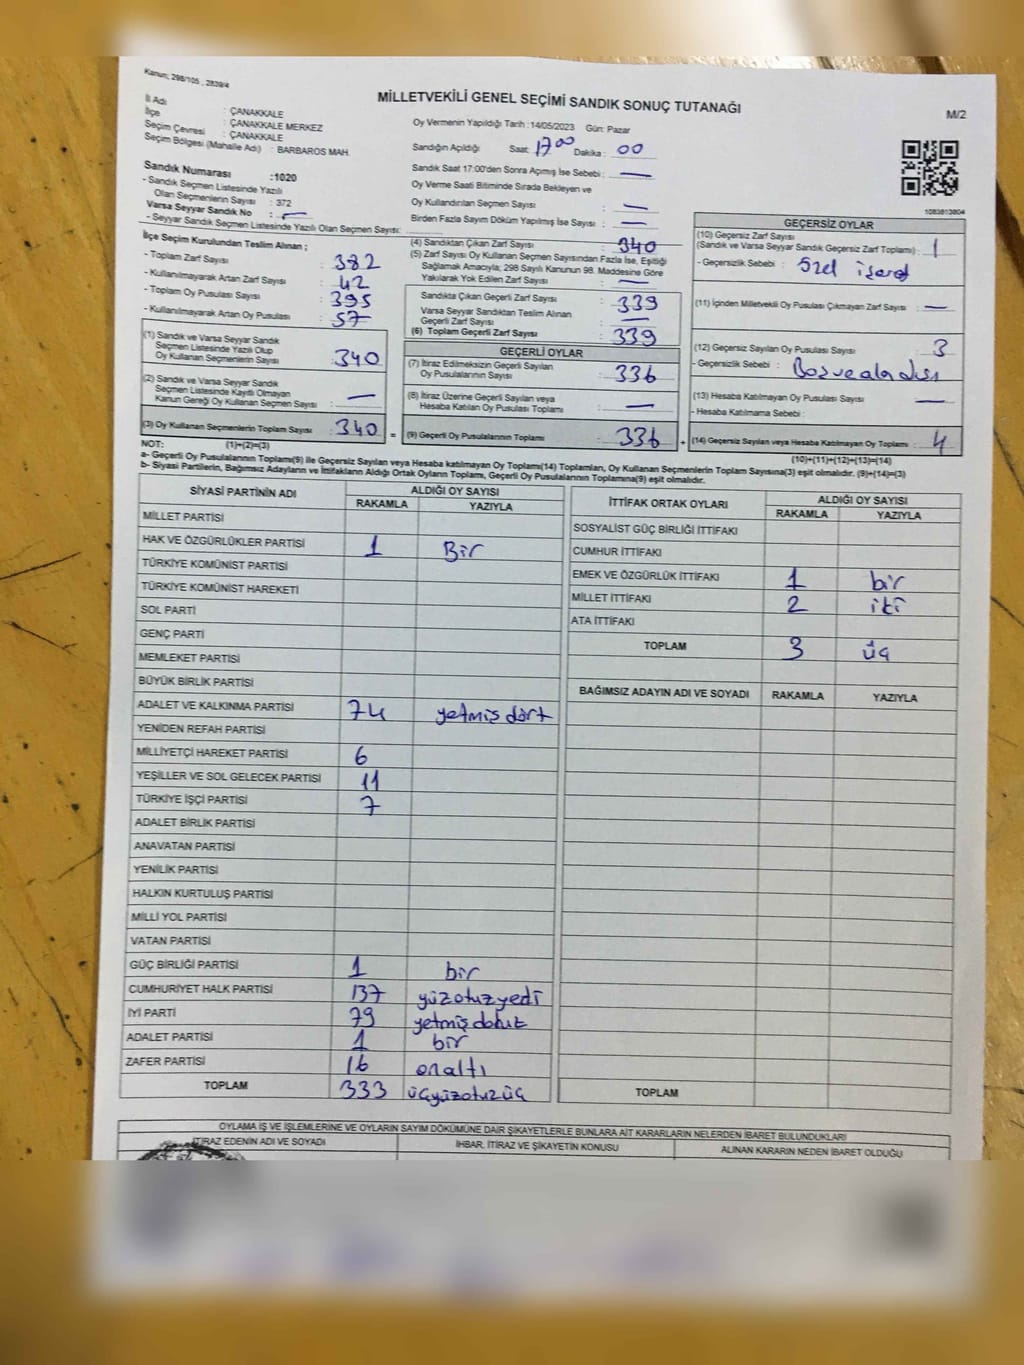 Kanun; 298/105 , 2839/4
MİLLETVEKİLİ GENEL SEÇİMİ SANDIK SONUÇ TUTANAĞI
M/2
İl Adı : ÇANAKKALE
İlçe : ÇANAKKALE MERKEZ
Seçim Çevresi : ÇANAKKALE
Seçim Bölgesi (Mahalle Adı) : BARBAROS MAH.
Sandık Numarası :1020
- Sandık Seçmen Listesinde Yazılı
Olan Seçmenlerin Sayısı : 372
Varsa Seyyar Sandık No : —
- Seyyar Sandık Seçmen Listesinde Yazılı Olan Seçmen Sayısı:
Oy Vermenin Yapıldığı Tarih :14/05/2023 Gün: Pazar
Sandığın Açıldığı Saat: 17 00 Dakika : 00
Sandık Saat 17:00'den Sonra Açımış İse Sebebi : —
Oy Verme Saati Bitiminde Sırada Bekleyen ve
Oy Kullandırılan Seçmen Sayısı : —
Birden Fazla Sayım Döküm Yapılmış İse Sayısı : —
1083813804
İlçe Seçim Kurulundan Teslim Alınan ;
- Toplam Zarf Sayısı : 382
- Kullanılmayarak Artan Zarf Sayısı : 42
- Toplam Oy Pusulası Sayısı : 395
- Kullanılmayarak Artan Oy Pusulası : 57
(1) Sandık ve Varsa Seyyar Sandık
Seçmen Listesinde Yazılı Olup
Oy Kullanan Seçmenlerin Sayısı : 340
(2) Sandık ve Varsa Seyyar Sandık
Seçmen Listesinde Kayıtlı Olmayan
Kanun Gereği Oy Kullanan Seçmen Sayısı : —
(3) Oy Kullanan Seçmenlerin Toplam Sayısı : 340 =
(4) Sandıktan Çıkan Zarf Sayısı : 340
(5) Zarf Sayısı Oy Kullanan Seçmen Sayısından Fazla İse, Eşitliği
Sağlamak Amacıyla; 298 Sayılı Kanunun 98. Maddesine Göre
Yakılarak Yok Edilen Zarf Sayısı : —
Sandıkta Çıkan Geçerli Zarf Sayısı : 339
Varsa Seyyar Sandıktan Teslim Alınan
Geçerli Zarf Sayısı : —
(6) Toplam Geçerli Zarf Sayısı : 339
GEÇERLİ OYLAR
(7) İtiraz Edilmeksizin Geçerli Sayılan
Oy Pusulalarının Sayısı : 336
(8) İtiraz Üzerine Geçerli Sayılan veya
Hesaba Katılan Oy Pusulası Toplamı : —
(9) Geçerli Oy Pusulalarının Toplamı : 336 +
GEÇERSİZ OYLAR
(10) Geçersiz Zarf Sayısı
(Sandık ve Varsa Seyyar Sandık Geçersiz Zarf Toplamı) : 1
- Geçersizlik Sebebi : Özel işaret
(11) İçinden Milletvekili Oy Pusulası Çıkmayan Zarf Sayısı : —
(12) Geçersiz Sayılan Oy Pusulası Sayısı : 3
- Geçersizlik Sebebi :
(13) Hesaba Katılmayan Oy Pusulası Sayısı : —
- Hesaba Katılmama Sebebi :
(14) Geçersiz Sayılan veya Hesaba Katılmayan Oy Toplamı : 4
NOT: (1)+(2)=(3)
(10)+(11)+(12)+(13)=(14)
a- Geçerli Oy Pusulalarının Toplamı(9) ile Geçersiz Sayılan veya Hesaba katılmayan Oy Toplamı(14) Toplamları, Oy Kullanan Seçmenlerin Toplam Sayısına(3) eşit olmalıdır. (9)+(14)=(3)
b- Siyasi Partilerin, Bağımsız Adayların ve İttifakların Aldığı Ortak Oyların Toplamı, Geçerli Oy Pusulalarının Toplamına(9) eşit olmalıdır.
SİYASİ PARTİNİN ADI ALDIĞI OY SAYISI
RAKAMLA YAZIYLA
MİLLET PARTİSİ
HAK VE ÖZGÜRLÜKLER PARTİSİ 1 Bir
TÜRKİYE KOMÜNİST PARTİSİ
TÜRKİYE KOMÜNİST HAREKETİ
SOL PARTİ
GENÇ PARTİ
MEMLEKET PARTİSİ
BÜYÜK BİRLİK PARTİSİ
ADALET VE KALKINMA PARTİSİ 74 yetmiş dört
YENİDEN REFAH PARTİSİ
MİLLİYETÇİ HAREKET PARTİSİ 6
YEŞİLLER VE SOL GELECEK PARTİSİ 11
TÜRKİYE İŞÇİ PARTİSİ 7
ADALET BİRLİK PARTİSİ
ANAVATAN PARTİSİ
YENİLİK PARTİSİ
HALKIN KURTULUŞ PARTİSİ
MİLLİ YOL PARTİSİ
VATAN PARTİSİ
GÜÇ BİRLİĞİ PARTİSİ 1 bir
CUMHURİYET HALK PARTİSİ 137 yüzotuzyedi
İYİ PARTİ 79 yetmiş dokuz
ADALET PARTİSİ 1 bir
ZAFER PARTİSİ 16 onaltı
TOPLAM 333 üçyüzotuzüç
İTTİFAK ORTAK OYLARI ALDIĞI OY SAYISI
RAKAMLA YAZIYLA
SOSYALİST GÜÇ BİRLİĞİ İTTİFAKI
CUMHUR İTTİFAKI
EMEK VE ÖZGÜRLÜK İTTİFAKI 1 bir
MİLLET İTTİFAKI 2 iki
ATA İTTİFAKI
TOPLAM 3 üç
BAĞIMSIZ ADAYIN ADI VE SOYADI RAKAMLA YAZIYLA
TOPLAM
OYLAMA İŞ VE İŞLEMLERİNE VE OYLARIN SAYIM DÖKÜMÜNE DAİR ŞİKAYETLERLE BUNLARA AİT KARARLARIN NELERDEN İBARET BULUNDUKLARI
İTİRAZ EDENİN ADI VE SOYADI İHBAR, İTİRAZ VE ŞİKAYETİN KONUSU ALINAN KARARIN NEDEN İBARET OLDUĞU